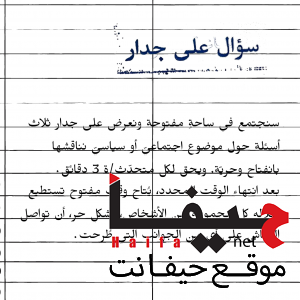 سؤال على جدار
سنجتمع في ساحة مفتوحة ونعرض على جدار ثلاث
أسئلة حول موضوع اجتماعي أو سياسي نناقشها
بانفتاح وحريّة. ويحق لكل متحدّث/ة 3 دقائق.
بعد انتهاء الوقت المحدد، يُتاح وقت مفتوح تستطيع
خلاله كل مجموعة من الأشخاص بشكل حر، أن تواصل
الجوانب التي طرحت.
حيفا
Haifa net
موقع حيفانت